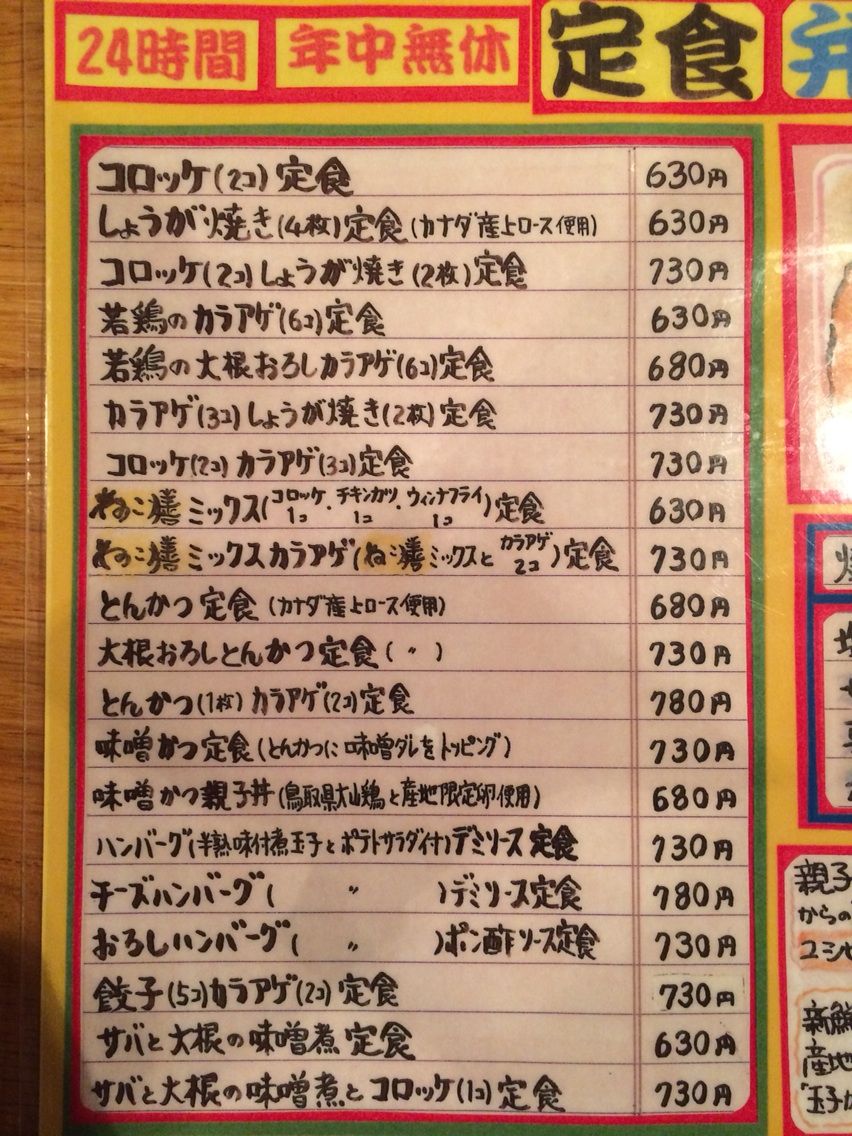 24時間 年中無休 定食
コロッケ(2コ)定食 630円
しょうが焼き(4枚)定食(カナダ産上ロース使用) 630円
コロッケ(2コ)しょうが焼き(2枚)定食 730円
若鶏のカラアゲ(6コ)定食 630円
若鶏の大根おろしカラアゲ(6コ)定食 680円
カラアゲ(3コ)しょうが焼き(2枚)定食 730円
コロッケ(2コ)カラアゲ(3コ)定食 730円
ねこ膳ミックス(コロッケ1コ・チキンカツ1コ・ウィンナフライ1コ)定食 630円
ねこ膳ミックスカラアゲ(ねこ膳ミックスとカラアゲ2コ)定食 730円
とんかつ定食(カナダ産上ロース使用) 680円
大根おろしとんかつ定食(〃) 730円
とんかつ(1枚)カラアゲ(2コ)定食 780円
味噌かつ定食(とんかつに味噌ダレをトッピング) 730円
味噌かつ親子丼(鳥取県大山鶏と産地限定卵使用) 680円
ハンバーグ(半熟味付煮玉子とポテトサラダ付)デミソース定食 730円
チーズハンバーグ(〃)デミソース定食 780円
おろしハンバーグ(〃)ポン酢ソース定食 730円
餃子(5コ)カラアゲ(2コ)定食 730円
サバと大根の味噌煮定食 630円
サバと大根の味噌煮とコロッケ(1コ)定食 730円
親子
からの
新鮮
産地